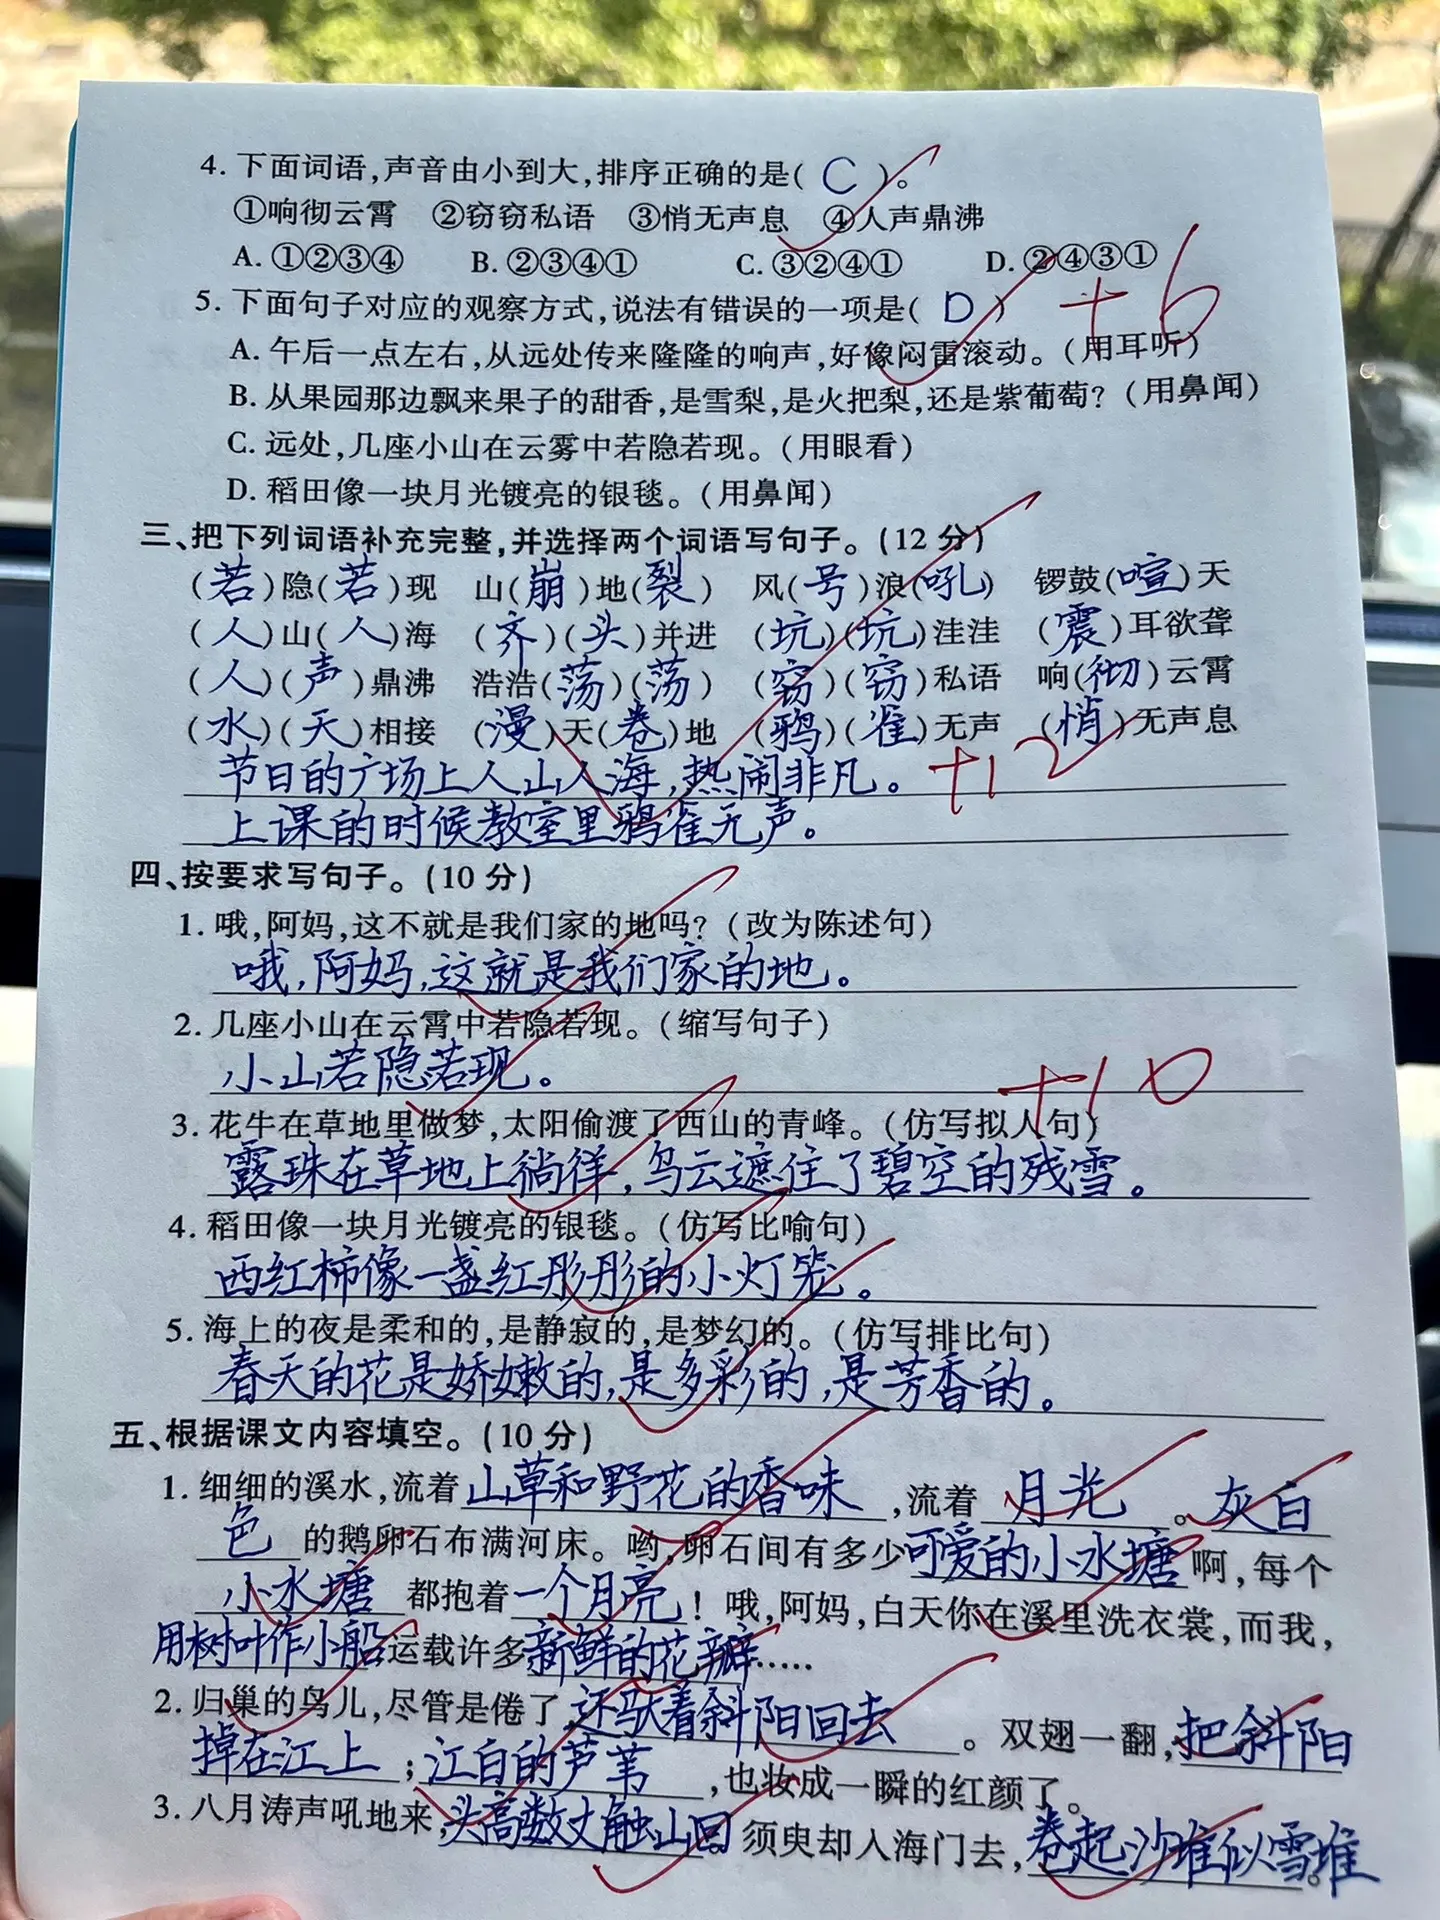 4. 下面词语,声音由小到大,排序正确的是( C )。
①响彻云霄 ②窃窃私语 ③悄无声息 ④人声鼎沸
A. ①②③④ B. ②③④① C. ③②④① D. ②④③①
5. 下面句子对应的观察方式,说法有错误的一项是( D ) +6
A. 午后一点左右,从远处传来隆隆的响声,好像闷雷滚动。(用耳听)
B. 从果园那边飘来果子的甜香,是雪梨,是火把梨,还是紫葡萄?(用鼻闻)
C. 远处,几座小山在云雾中若隐若现。(用眼看)
D. 稻田像一块月光镀亮的银毯。(用鼻闻)
三、把下列词语补充完整,并选择两个词语写句子。(12 分)
(若)隐(若)现 山(崩)地(裂) 风(号)浪(吼) 锣鼓(喧)天
(人)山(人)海 (齐)(头)并进 (坑)(坑)洼洼 (震)耳欲聋
(人)(声)鼎沸 浩浩(荡)(荡) (窃)(窃)私语 响(彻)云霄
(水)(天)相接 (漫)天(卷)地 (鸦)(雀)无声 (悄)无声息
节日的广场上人山人海,热闹非凡。 +12
上课的时候教室里鸦雀无声。
四、按要求写句子。(10 分)
1. 哦,阿妈,这不就是我们家的地吗?(改为陈述句)
哦,阿妈,这就是我们家的地。
2. 几座小山在云霄中若隐若现。(缩写句子)
小山若隐若现。 +10
3. 花牛在草地里做梦,太阳偷渡了西山的青峰。(仿写拟人句)
露珠在草地上徜徉,乌云遮住了碧空的残雪。
4. 稻田像一块月光镀亮的银毯。(仿写比喻句)
西红柿像一盏红彤彤的小灯笼。
5. 海上的夜是柔和的,是静寂的,是梦幻的。(仿写排比句)
春天的花是娇嫩的,是多彩的,是芳香的。
五、根据课文内容填空。(10 分)
1. 细细的溪水,流着山草和野花的香味,流着月光。灰白
色的鹅卵石布满河床。哟,卵石间有多少可爱的小水塘啊,每个
小水塘都抱着一个月亮!哦,阿妈,白天你在溪里洗衣裳,而我,
用树叶作小船运载许多新鲜的花瓣……
2. 归巢的鸟儿,尽管是倦了,还驮着斜阳回去。双翅一翻,把斜阳
掉在江上;江白的芦苇,也妆成一瞬的红颜了。
3. 八月涛声吼地来,头高数丈触山回。须臾却入海门去,卷起沙堆似雪堆。